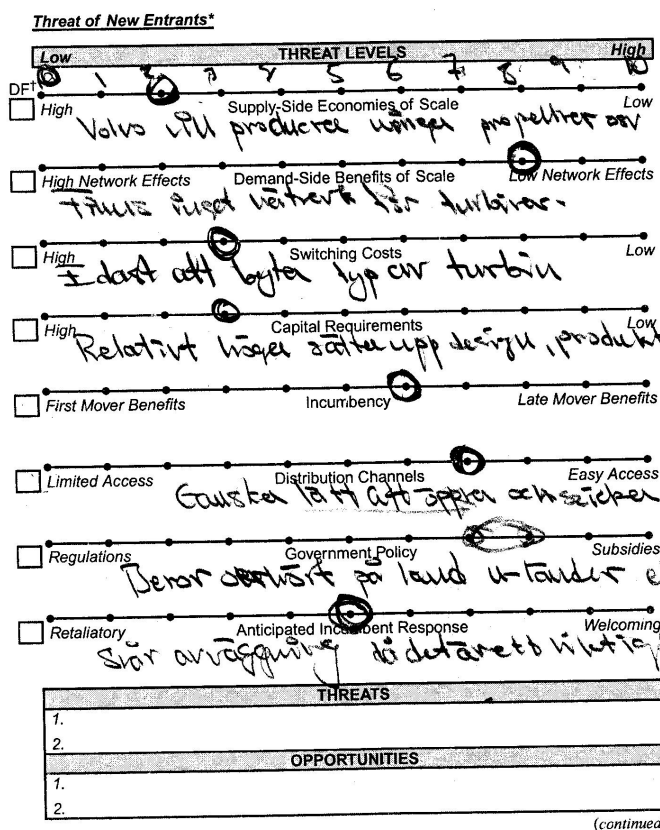 Threat of New Entrants*
Low THREAT LEVELS High
0 1 2 3 4 5 6 7 8 9 10
DF†
High Supply-Side Economies of Scale Low
Volvo vill producera många propellrar
High Network Effects Demand-Side Benefits of Scale Low Network Effects
Finns inget nätverk för turbiner.
High Switching Costs Low
att byta typ av turbin
High Capital Requirements Low
Relativt höga sätta upp design, produkt
First Mover Benefits Incumbency Late Mover Benefits
Limited Access Distribution Channels Easy Access
Ganska lätt att öppna och
Regulations Government Policy Subsidies
Beror på land
Retaliatory Anticipated Incumbent Response Welcoming
Svår avvägning då det är ett viktig
THREATS
1.
2.
OPPORTUNITIES
1.
2.
(continued